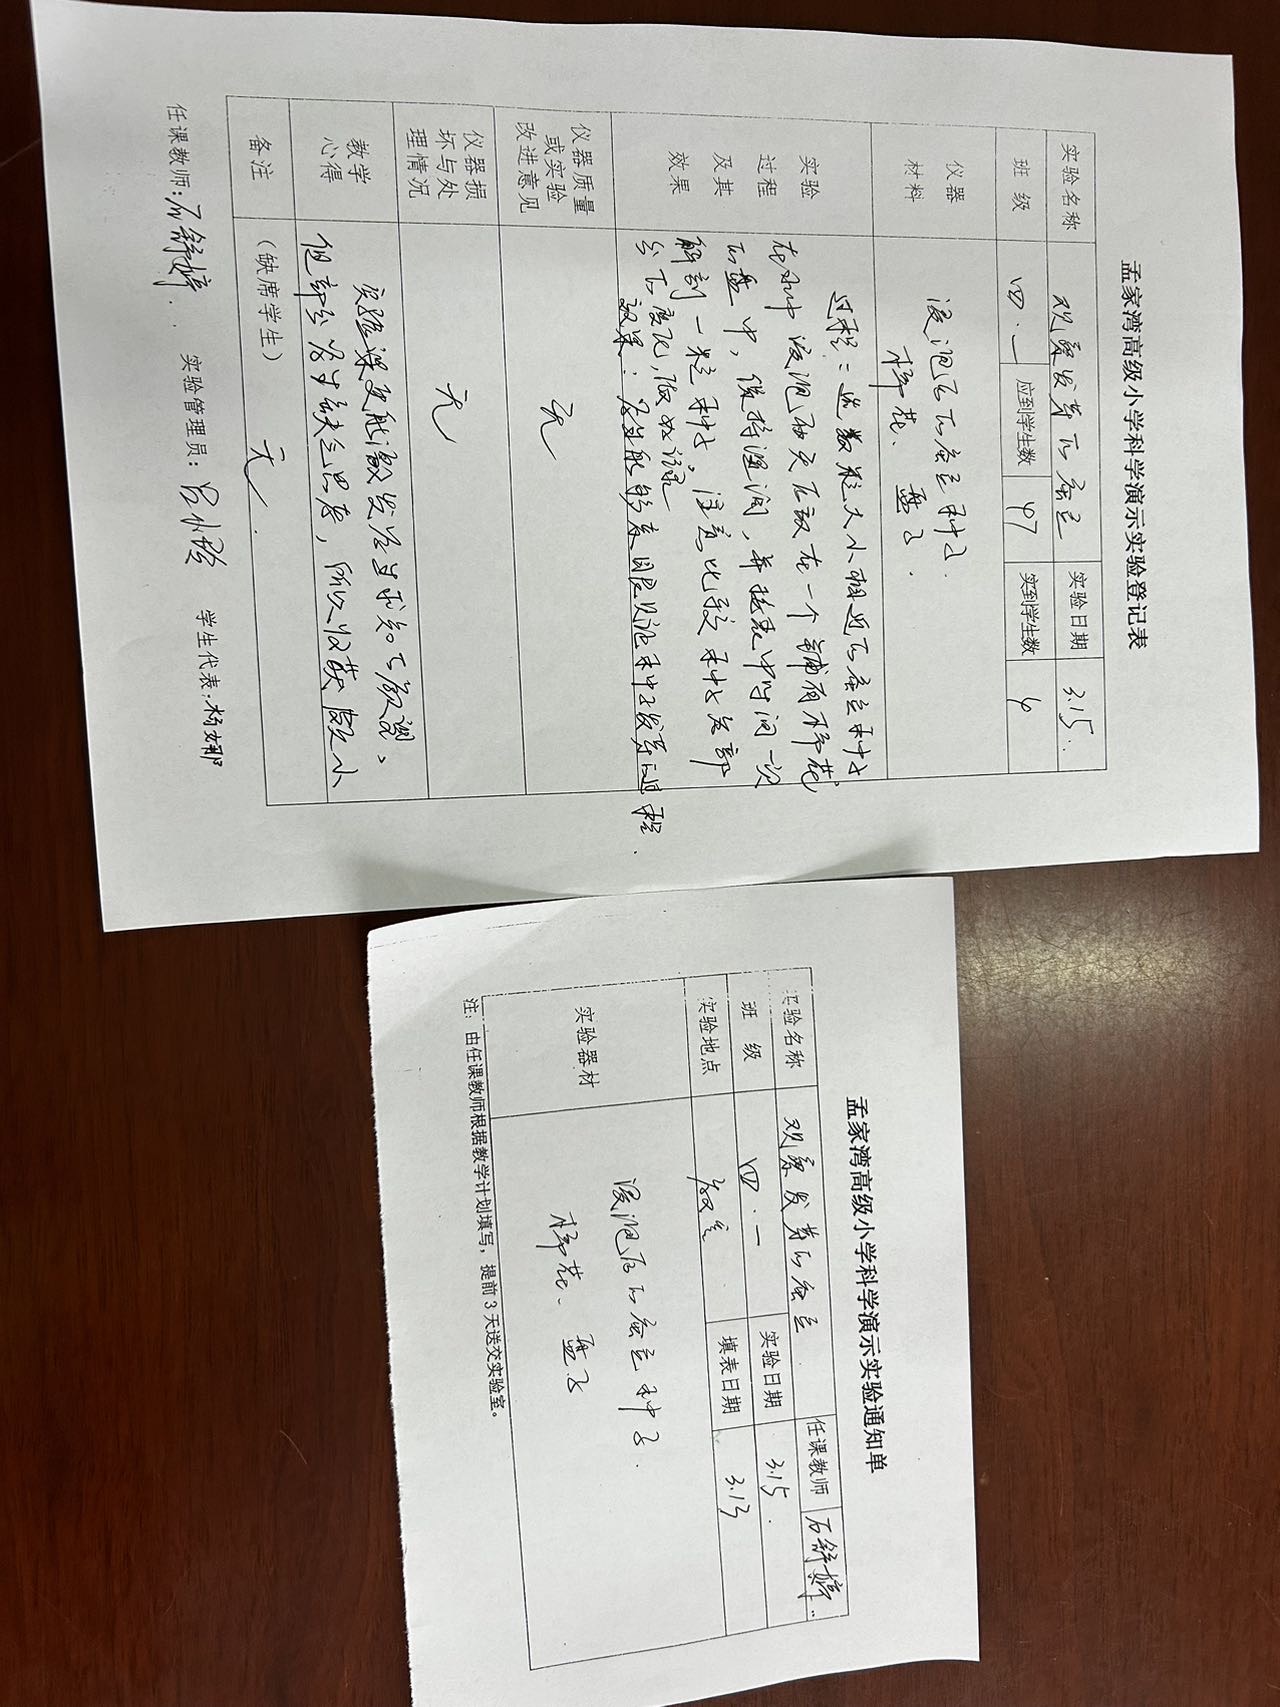 孟家湾高级小学科学演示实验登记表
实验名称 观察发芽的蚕豆 实验日期 3.15.
班级 四.一 应到学生数 47 实到学生数
仪器材料 浸泡过的蚕豆种子.
棉花、盘子.
实验过程及其效果 过程：选数粒大小相近的蚕豆种子
在水中浸泡两天后放在一个铺有棉花
的盘中，保持湿润，并每表中时间一次
解剖一粒种子，注意比较种子各部
分的变化，做好记录
效果：学生能够亲眼见证种子发芽过程.
仪器质量或实验改进意见 无
仪器损坏与处理情况 无
教学心得 实验课更能激发学生求知的欲望、
但部分学生缺乏思考，所以收获较小
备注 （缺席学生） 无.
任课教师：石舒婷. 实验管理员： 学生代表：杨娜
孟家湾高级小学科学演示实验通知单
实验名称 观察发芽的蚕豆 任课教师 石舒婷.
班级 四.一 实验日期 3.15.
实验地点 教室 填表日期 3.13
实验器材 浸泡后的蚕豆种子.
棉花、盘子
注：由任课教师根据教学计划填写，提前3天送交实验室。